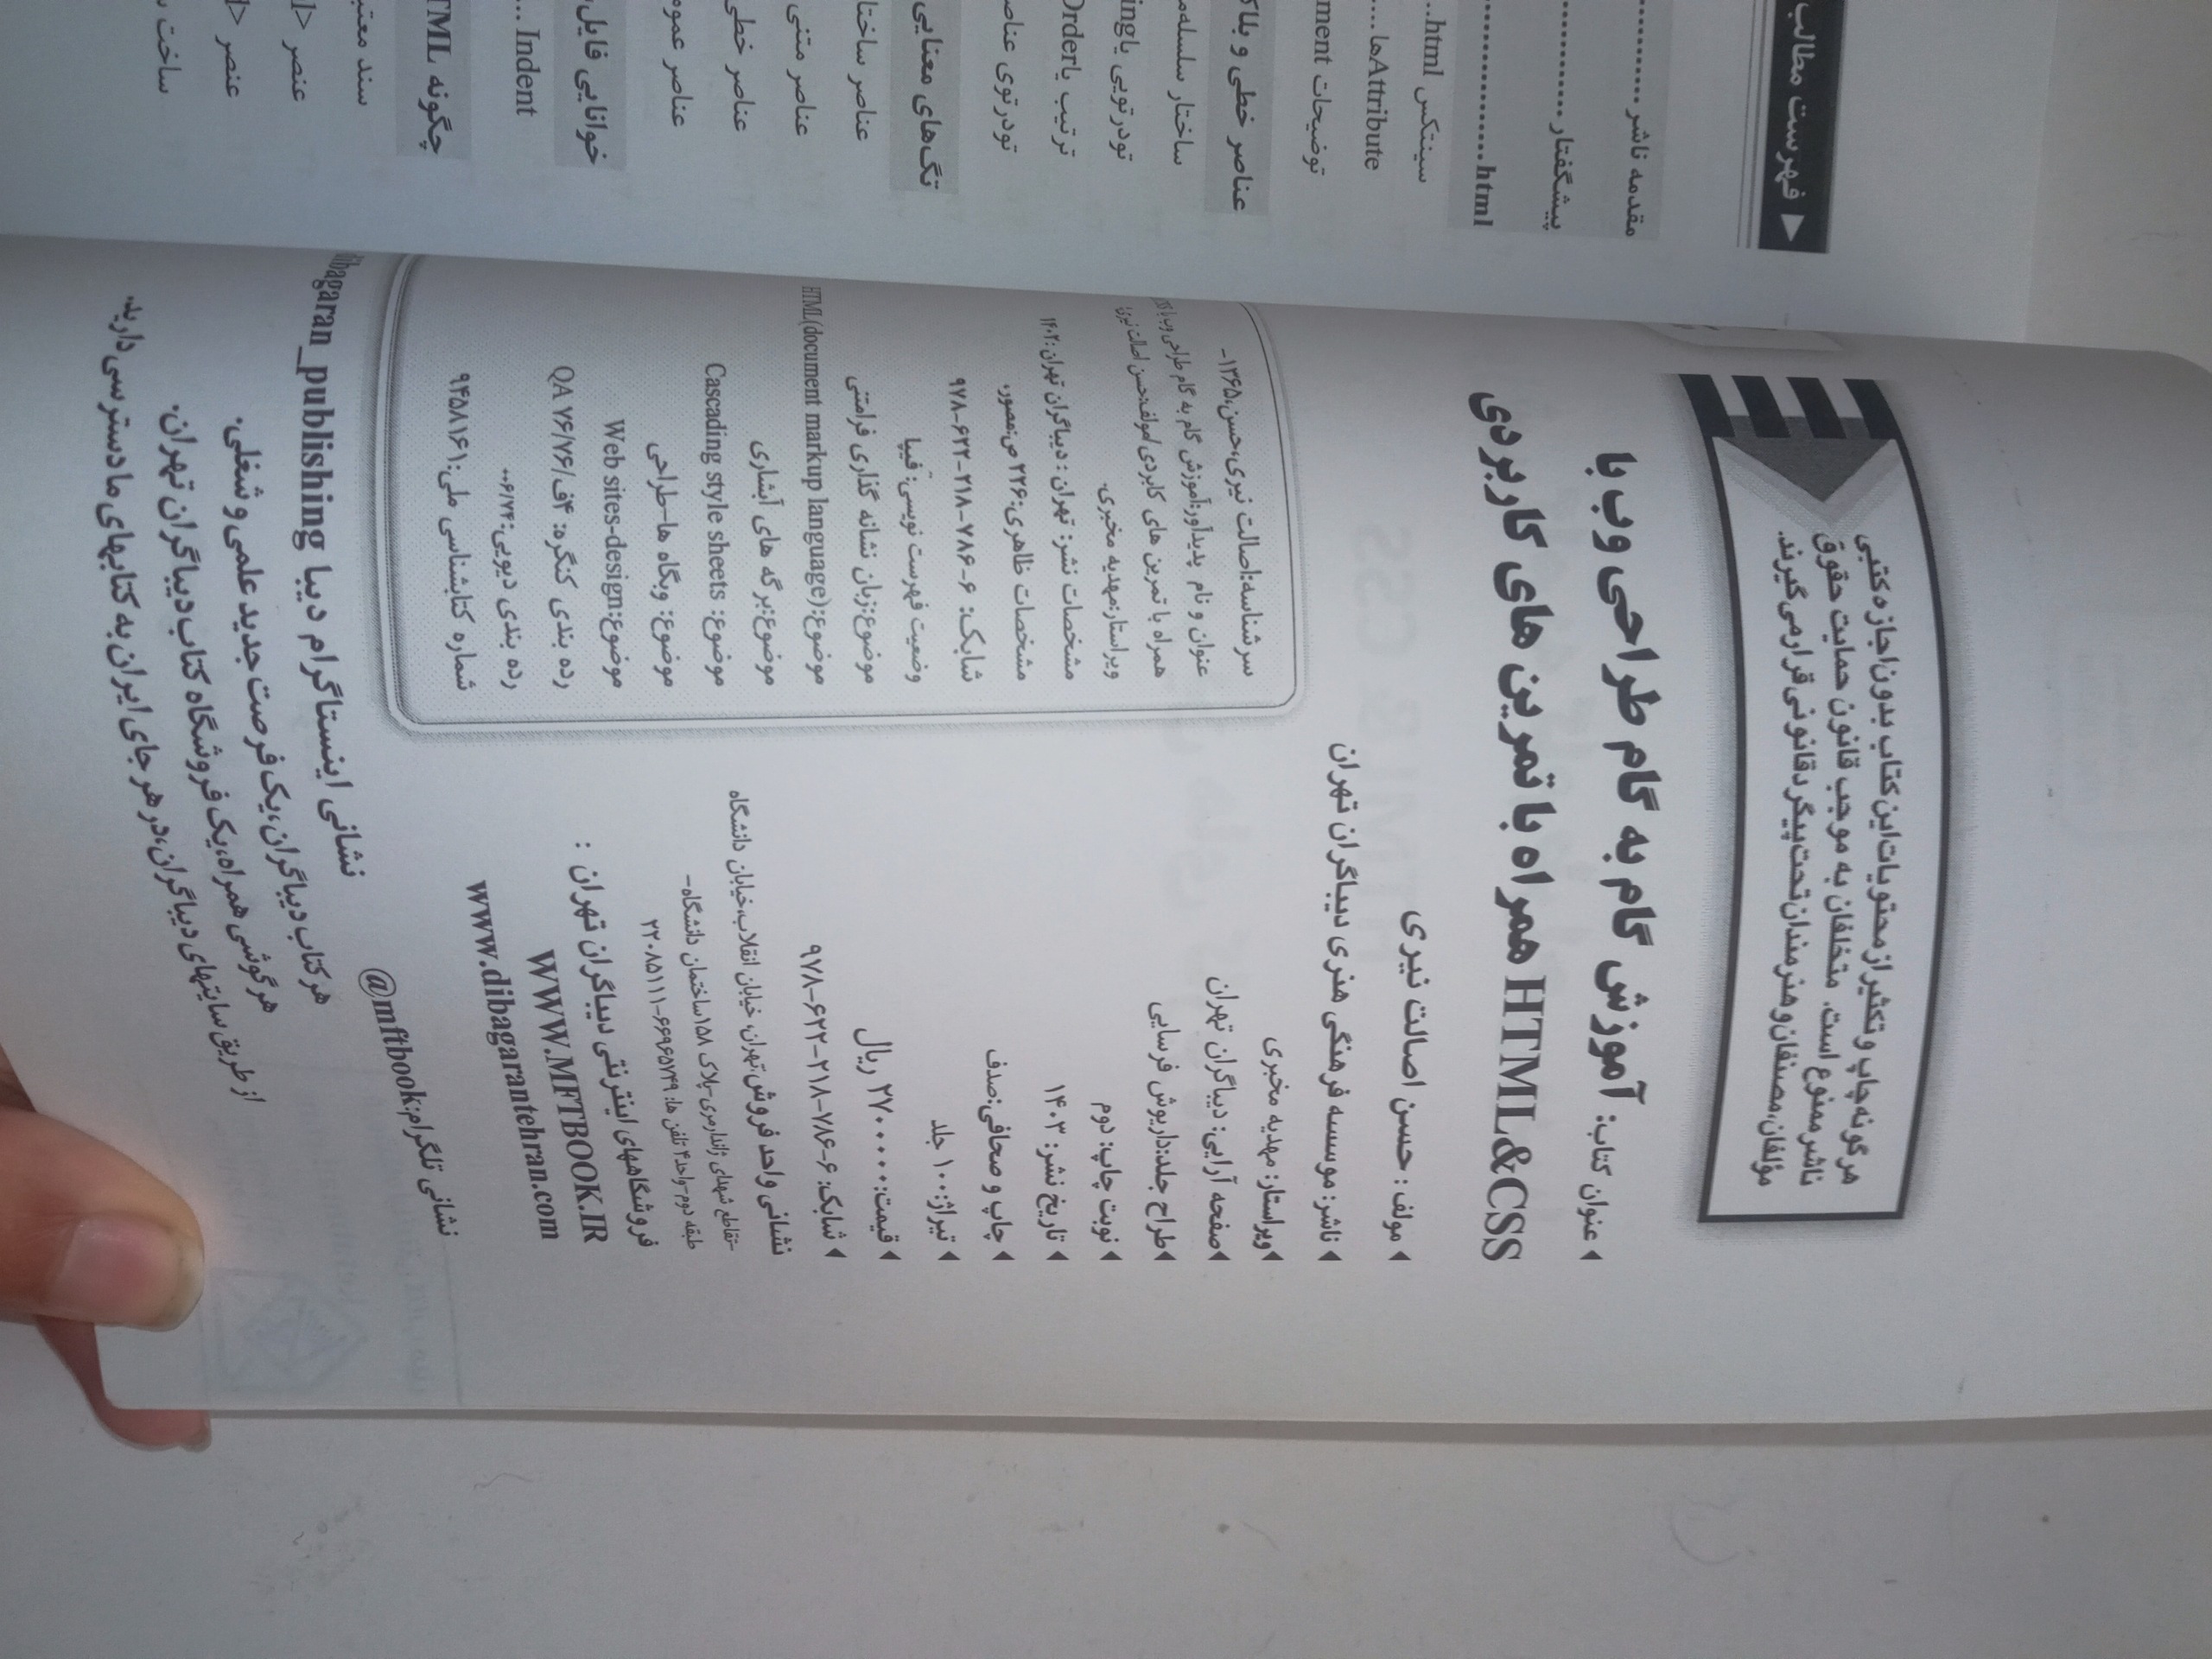 هرگونه چاپ و تکثیر از محتویات این کتاب بدون اجازه کتبی
ناشر ممنوع است. متخلفان به موجب قانون حمایت حقوق
مؤلفان، مصنفان و هنرمندان تحت پیگرد قانونی قرار می گیرند.
عنوان کتاب: آموزش گام به گام طراحی وب با
HTML&CSS همراه با تمرین های کاربردی
مولف: حسن اصالت نیری
ناشر: موسسه فرهنگی هنری دیباگران تهران
ویراستار: مهدیه مخبری
صفحه آرایی: دیباگران تهران
طراح جلد: داریوش فرسایی
نوبت چاپ: دوم
تاریخ نشر: ۱۴۰۳
چاپ و صحافی: صدف
تیراژ: ۱۰۰ جلد
قیمت: ۲۷۰۰۰۰۰ ریال
شابک: ۶-۷۸۶-۲۱۸-۶۲۲-۹۷۸
نشانی واحد فروش: تهران، خیابان انقلاب، خیابان دانشگاه
-تقاطع شهدای ژاندارمری-پلاک ۱۵۸ ساختمان دانشگاه-
طبقه دوم-واحد ۴ تلفن ها: ۲۲۰۸۵۱۱۱-۶۶۹۶۵۷۴۹
فروشگاههای اینترنتی دیباگران تهران :
WWW.MFTBOOK.IR
www.dibagarantehran.com
سرشناسه: اصالت نیری، حسن، ۱۳۶۵-
عنوان و نام پدیدآور: آموزش گام به گام طراحی وب با
همراه با تمرین های کابردی/مولف: حسن اصالت نیری؛
ویراستار: مهدیه مخبری.
مشخصات نشر: تهران : دیباگران تهران: ۱۴۰۲
مشخصات ظاهری: ۲۲۶ ص: مصور.
شابک: ۶-۷۸۶-۲۱۸-۶۲۲-۹۷۸
وضعیت فهرست نویسی: فیپا
موضوع: زبان نشانه گذاری فرامتنی
موضوع: HTML(document markup language)
موضوع: برگه های آبشاری
موضوع: Cascading style sheets
موضوع: وبگاه ها-طراحی
موضوع: Web sites-design
رده بندی کنگره: ۴ف/۷۶/۷۶ QA
رده بندی دیویی: ۰۰۶/۷۴
شماره کتابشناسی ملی: ۹۴۵۸۱۶۱
نشانی تلگرام: @mftbook
نشانی اینستاگرام دیبا dibagaran_publishing
هر کتاب دیباگران، یک فرصت جدید علمی و شغلی.
هر گوشی همراه، یک فروشگاه کتاب دیباگران تهران.
از طریق سایتهای دیباگران، در هر جای ایران به کتابهای ما دسترسی دارید.
فهرست مطالب
مقدمه ناشر
پیشگفتار
html
سینتکس html
Attributeها
توضیحات
عناصر خطی و
ساختار
تودرتویی یا
ترتیب یا Order
تودرتوی
تگ‌های معنایی
عناصر
عناصر متنی
عناصر خطی
عناصر
خوانایی فایل
Indent
چگونه
سند
عنصر
عنصر
ساخت